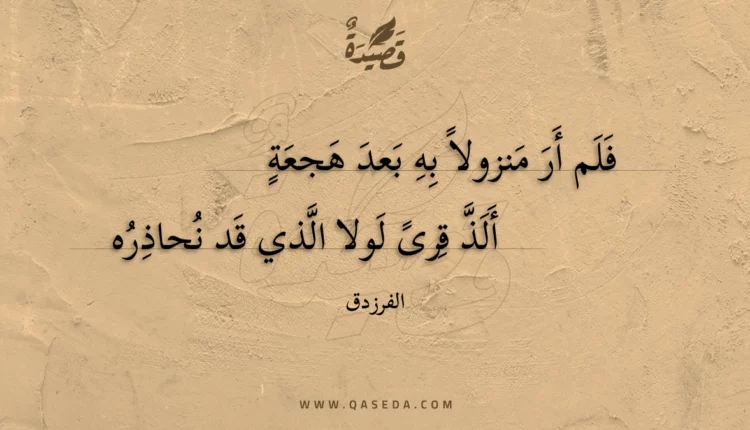 قَصِيدَةٌ
فَلَم أَرَ مَنزولاً بِهِ بَعدَ هَجعَةٍ
أَلَذَّ قِرىً لَولا الَّذي قَد نُحاذِرُه
الفرزدق
WWW.QASEDA.COM